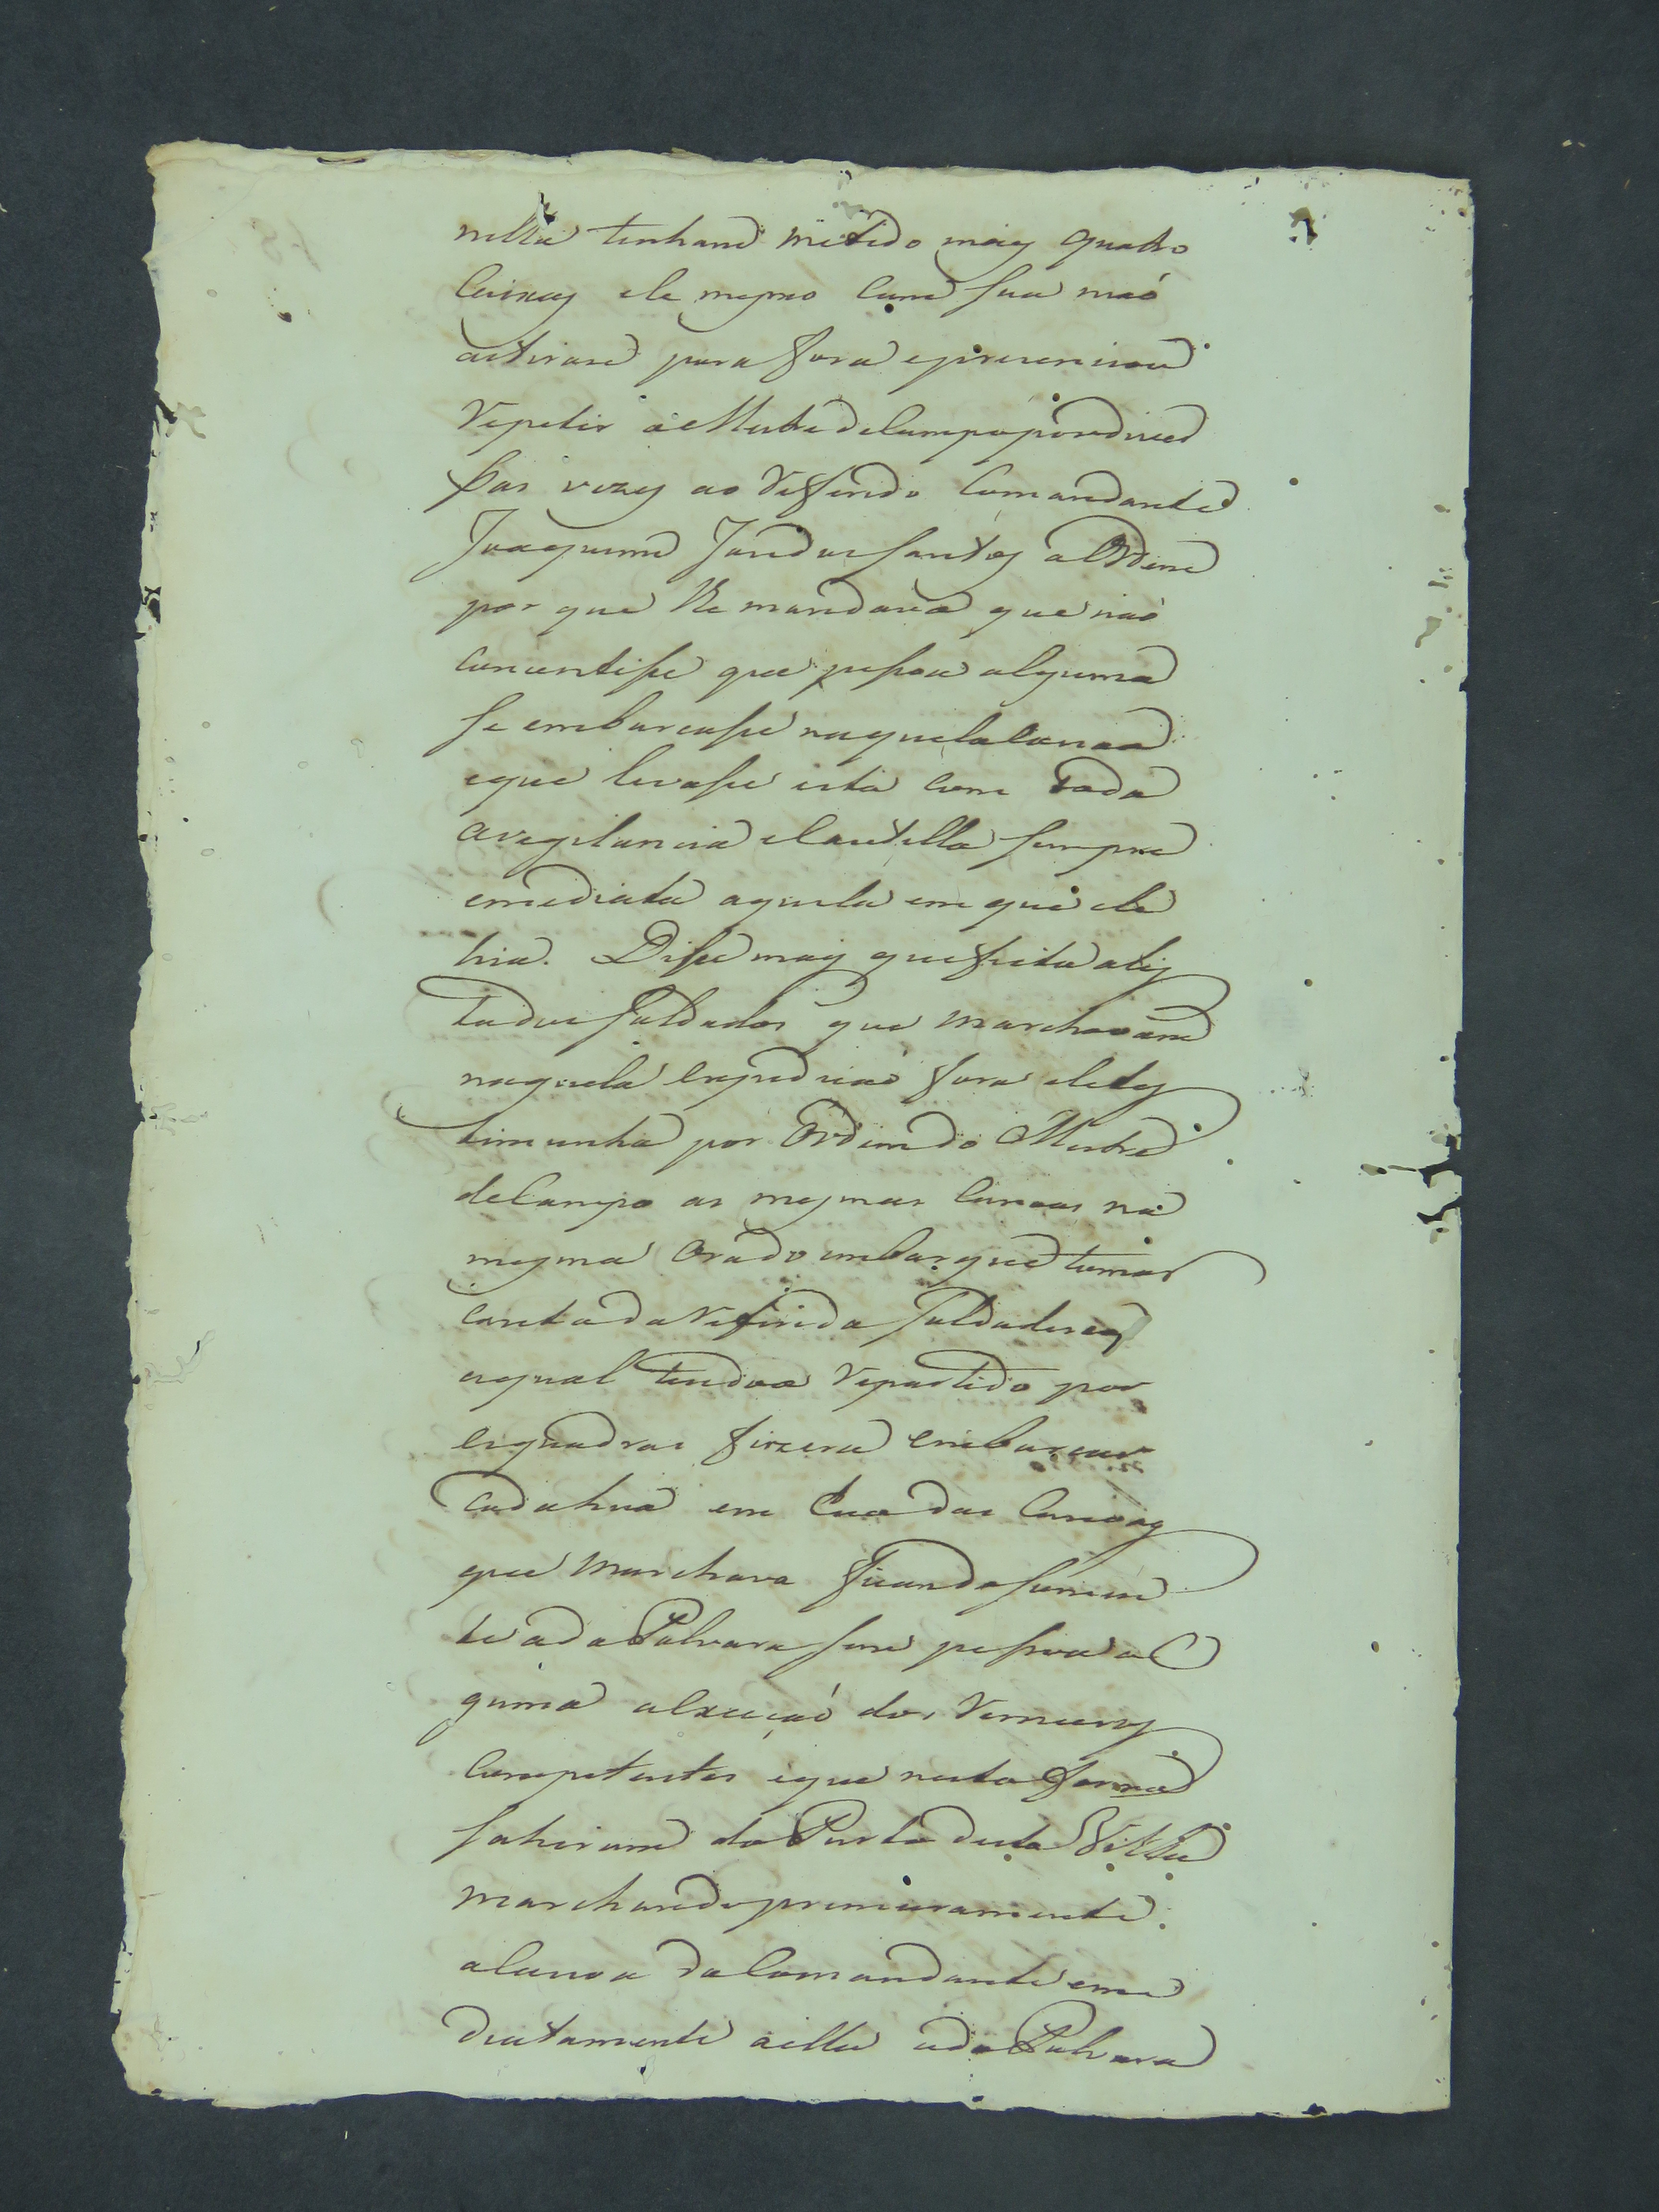 nella tinham metido mais quatro
Caixas ele mesmo com sua maó
as tirara para fora e prezenciou
Repetir o Mestre de Campo por diver
ssas vezes ao Refferido Comandante
Joaquim Joze dos Santos a Ordem
por que lhe mandava que naó
concentisse que pessoa alguma
se embarcasse naquela Canoa
e que levasse esta com toda
a vigilancia e Cautella sempre
emediata aquela em que ele
hia. Disse mais que feita a lis
ta dos Soldados que marchavam
naquela expediçaó fora ele tes
timunha por Ordem do Mestre
de Campo as mesmas Canoas na
mesma Ora do embarque tomar
conta da Referida Soldadesca
a qual tendoa Repartido por
esquadras fizera embarcar
cada huá em Cua das Canoas
que marchava ficando somen
te a da Polvara sem pessoa al
guma a Excepçaó dos Remeiros
Competentes e que nesta forma
sahiram do Porto desta Villa
marchando primeiramente
a Canoa do Comandante eme
diatamente a ella a da Polvara